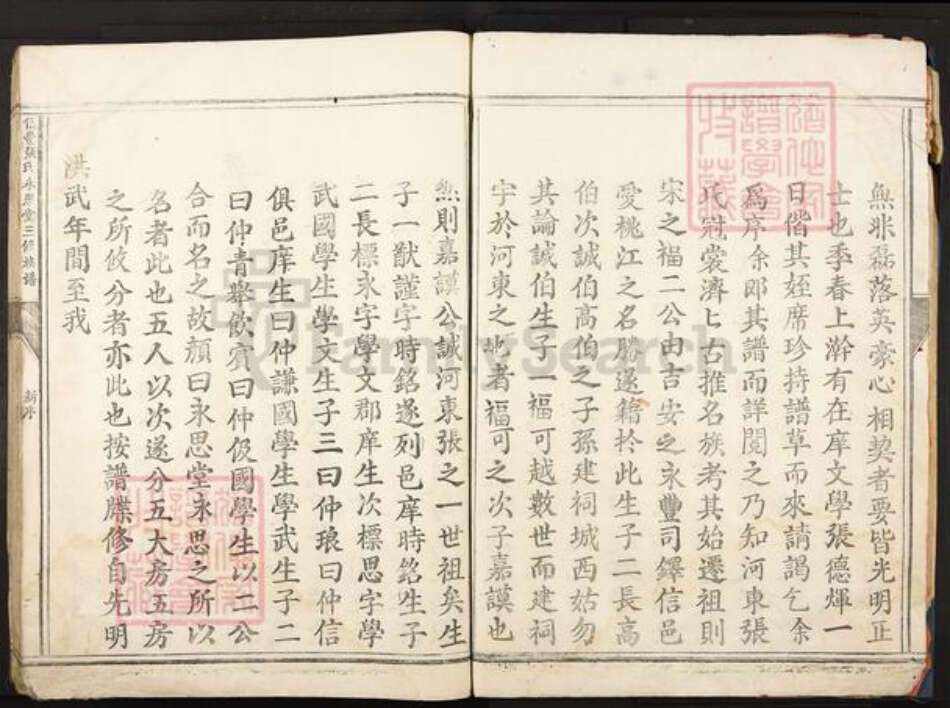 無非磊落英豪心相契者要皆光明正
士也季春上澣有在庠文學張德煇一
日偕其姪席珍持譜草而來請謁乞余
爲序余郎其譜而詳閱之乃知河東張
氏冠裳濟匕古推名族考其始遷祖則
宋之福二公由吉安之永豐司鐸信邑
愛桃江之名勝遂籍於此生子二長高
伯次誠伯高伯之子孫建祠城西姑勿
其論誠伯生子一福可越數世而建祠
宇於河東之地者福可之次子嘉謨也
然則嘉謨公誠河東張之一世祖矣生
子一猷謹字時銘遂列邑庠時銘生子
二長標永字學文郡庠生次標思字學
武國學生學文生子三曰仲琅曰仲信
俱邑庠生曰仲謙國學生學武生子二
曰仲青舉飲賓曰仲伋國學生以二公
合而名之故顏曰永思堂永思之所以
名者此也五人以次遂分五大房五房
之所攸分者亦此也按譜牒修自先明
洪武年間至我
張氏永思堂三修族譜
新序
FamilySearch